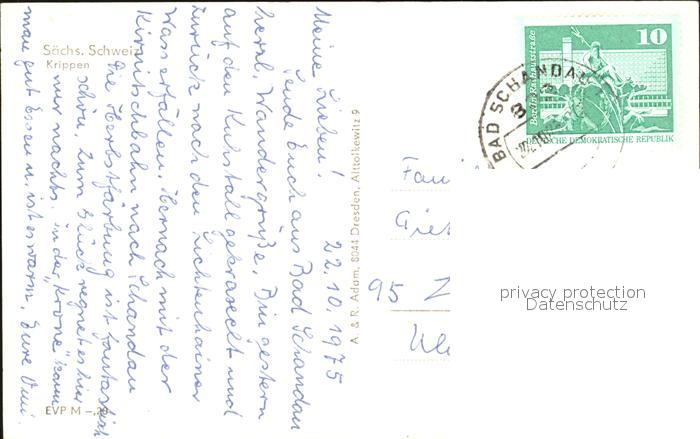 Sächs. Schweiz
Krippen
22.10.1975
Meine Lieben!
Sende Euch aus Bad Schandau
herzl. Wandergrüße. Bin gestern
auf den Kuhstall gekraxelt und
zurück nach den Lichtenhainer
Wasserfällen. Hernach mit der
Kirnitschbahn nach Schandau
Die Herbstfärbung ist fantastisch
schön, zum Glück regnet es hier
nur nachts. in der "Krone" kann
man gut Essen u. ist es warm. Eure Omi.
EVP M –,20
A. & R. Adam, 8044 Dresden, Alttolkewitz 9
Berlin, Rathausstraße
10
DEUTSCHE DEMOKRATISCHE REPUBLIK
BAD SCHANDAU
Fam
95 Z
privacy protection
Datenschutz